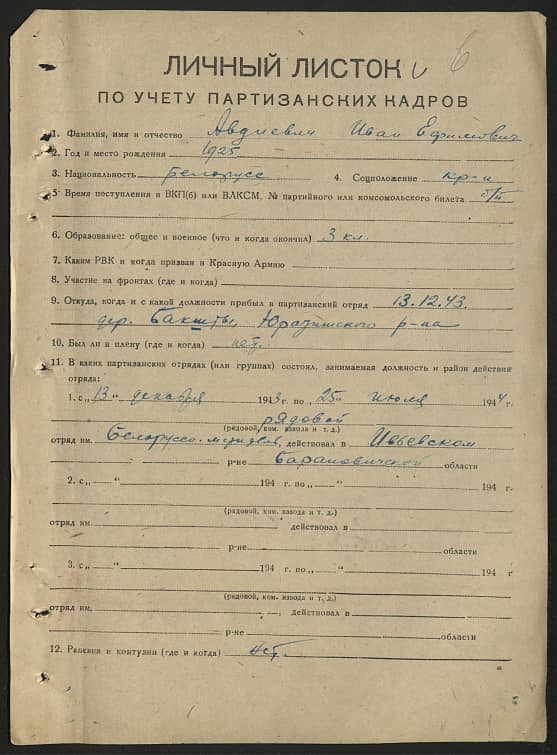 ЛИЧНЫЙ ЛИСТОК
ПО УЧЕТУ ПАРТИЗАНСКИХ КАДРОВ
1. Фамилия, имя и отчество Авдиевич Иван Ефимович
2. Год и место рождения 1925
3. Национальность белорусс 4. Соцположение кр-н
5. Время поступления в ВКП(б) или ВЛКСМ, № партийного или комсомольского билета б/п
6. Образование: общее и военное (что и когда окончил) 3 кл.
7. Каким РВК и когда призван в Красную Армию
8. Участие на фронтах (где и когда)
9. Откуда, когда и с какой должности прибыл в партизанский отряд 13.12.43.
дер. Бакшты, Юратишского р-на
10. Был ли в плену (где и когда) нет.
11. В каких партизанских отрядах (или группах) состоял, занимаемая должность и район действия
отряда:
1. с „13" декабря 1943 г. по „25" июля 1944 г.
рядовой
(рядовой, ком. взвода и т. д.)
отряд им. действовал в Ивьевском
р-не Барановичской области
2. с „ " 194 г. по „ " 194 г.
(рядовой, ком. взвода и т. д.)
отряд им. действовал в
р-не области
3. с „ " 194 г. по „ " 194 г
(рядовой, ком. взвода и т. д.)
отряд им. действовал в
р-не области
12. Ранения и контузии (где и когда) нет.